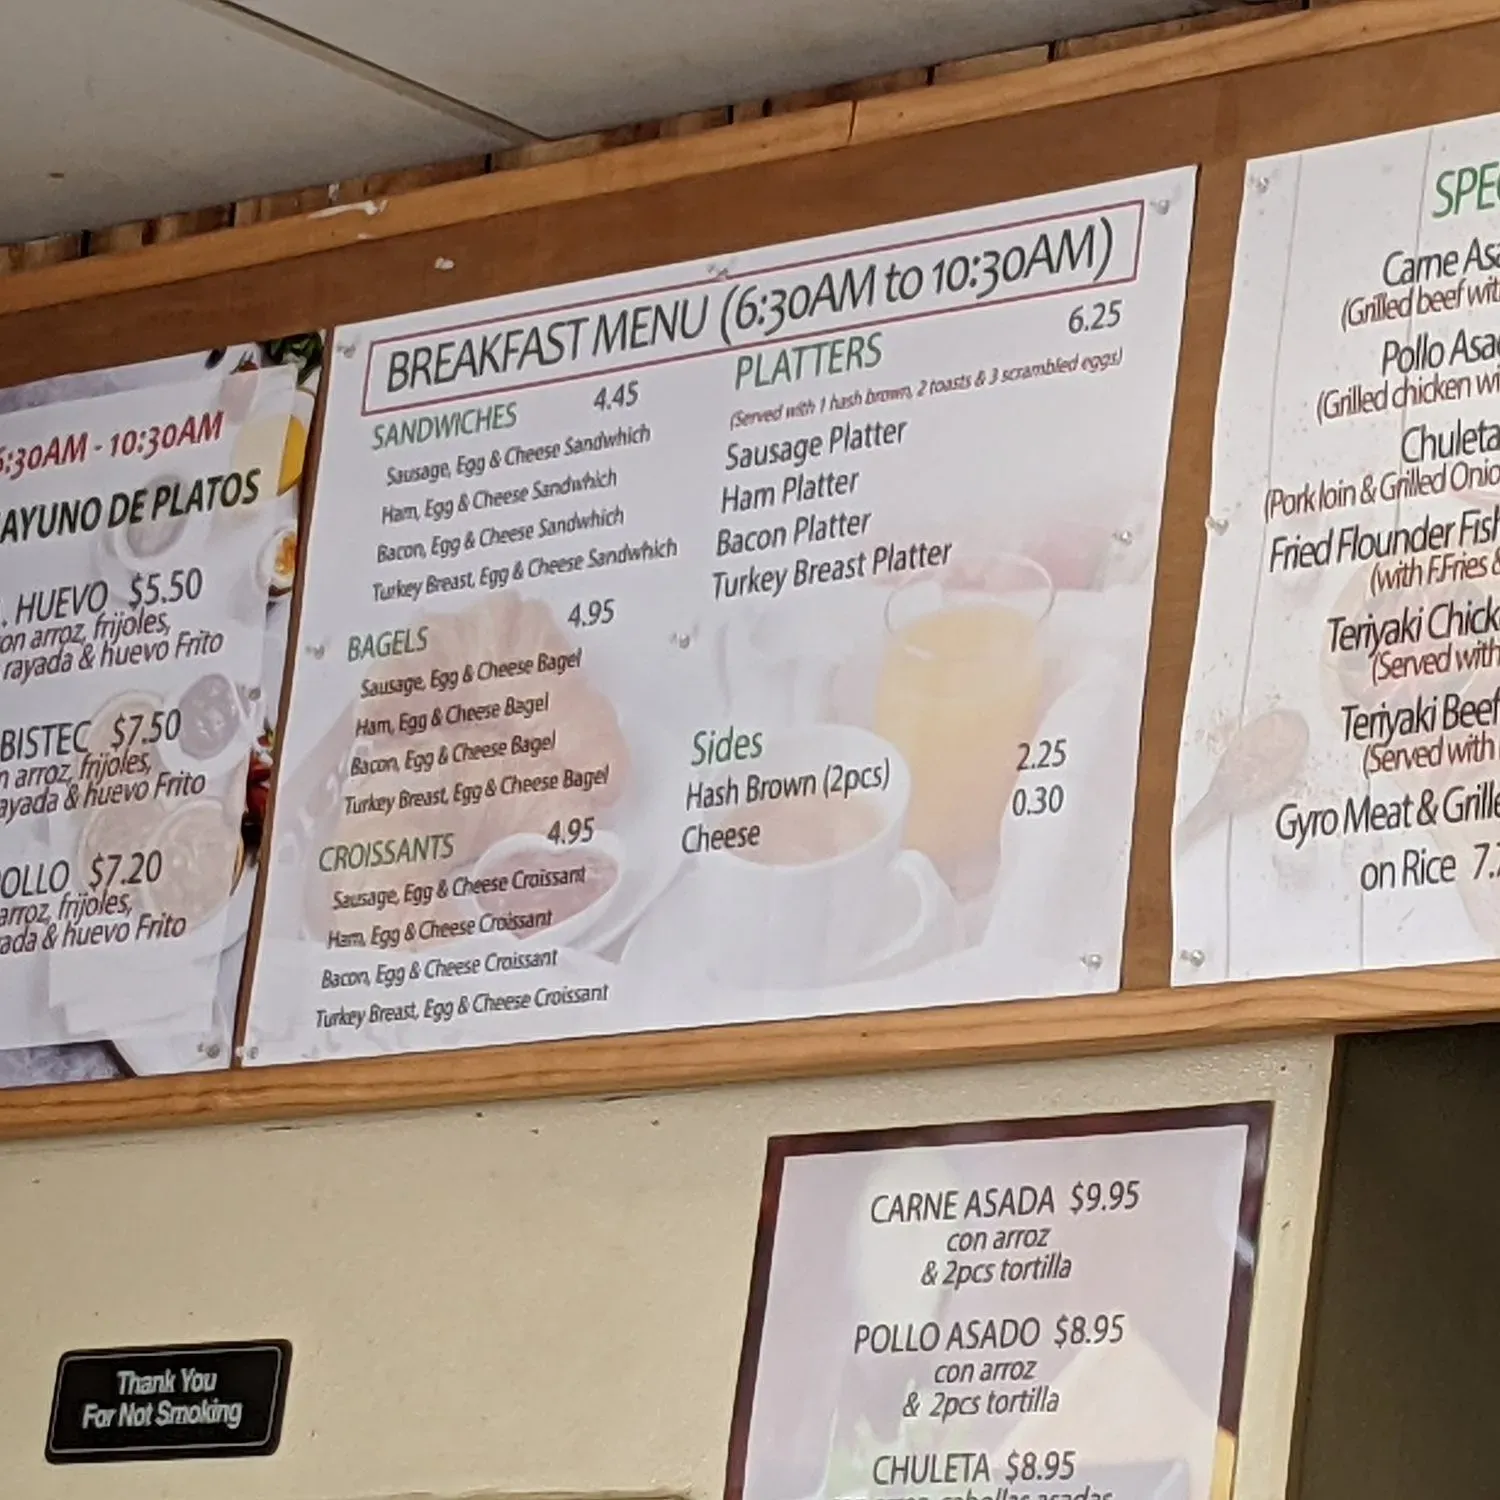 :30AM - 10:30AM
DE PLATOS
HUEVO $5.50
arroz, frijoles,
rayada & huevo Frito
BISTEC $7.50
arroz, frijoles,
& huevo Frito
$7.20
arroz, frijoles,
& huevo Frito
BREAKFAST MENU (6:30AM to 10:30AM)
SANDWICHES 4.45
Sausage, Egg & Cheese Sandwhich
Ham, Egg & Cheese Sandwhich
Bacon, Egg & Cheese Sandwhich
Turkey Breast, Egg & Cheese Sandwhich
BAGELS 4.95
Sausage, Egg & Cheese Bagel
Ham, Egg & Cheese Bagel
Bacon, Egg & Cheese Bagel
Turkey Breast, Egg & Cheese Bagel
CROISSANTS 4.95
Sausage, Egg & Cheese Croissant
Ham, Egg & Cheese Croissant
Bacon, Egg & Cheese Croissant
Turkey Breast, Egg & Cheese Croissant
PLATTERS 6.25
(Served with 1 hash brown, 2 toasts & 3 scrambled eggs)
Sausage Platter
Ham Platter
Bacon Platter
Turkey Breast Platter
Sides
Hash Brown (2pcs) 2.25
Cheese 0.30
Carne
(Grilled beef
Pollo
(Grilled chicken
Chuleta
(Pork loin & Grilled
Fried Flounder
(with F.Fries
Teriyaki
(Served with
Teriyaki Beef
(Served with
Gyro Meat &
on Rice
CARNE ASADA $9.95
con arroz
& 2pcs tortilla
POLLO ASADO $8.95
con arroz
& 2pcs tortilla
CHULETA $8.95
Thank You
For Not Smoking